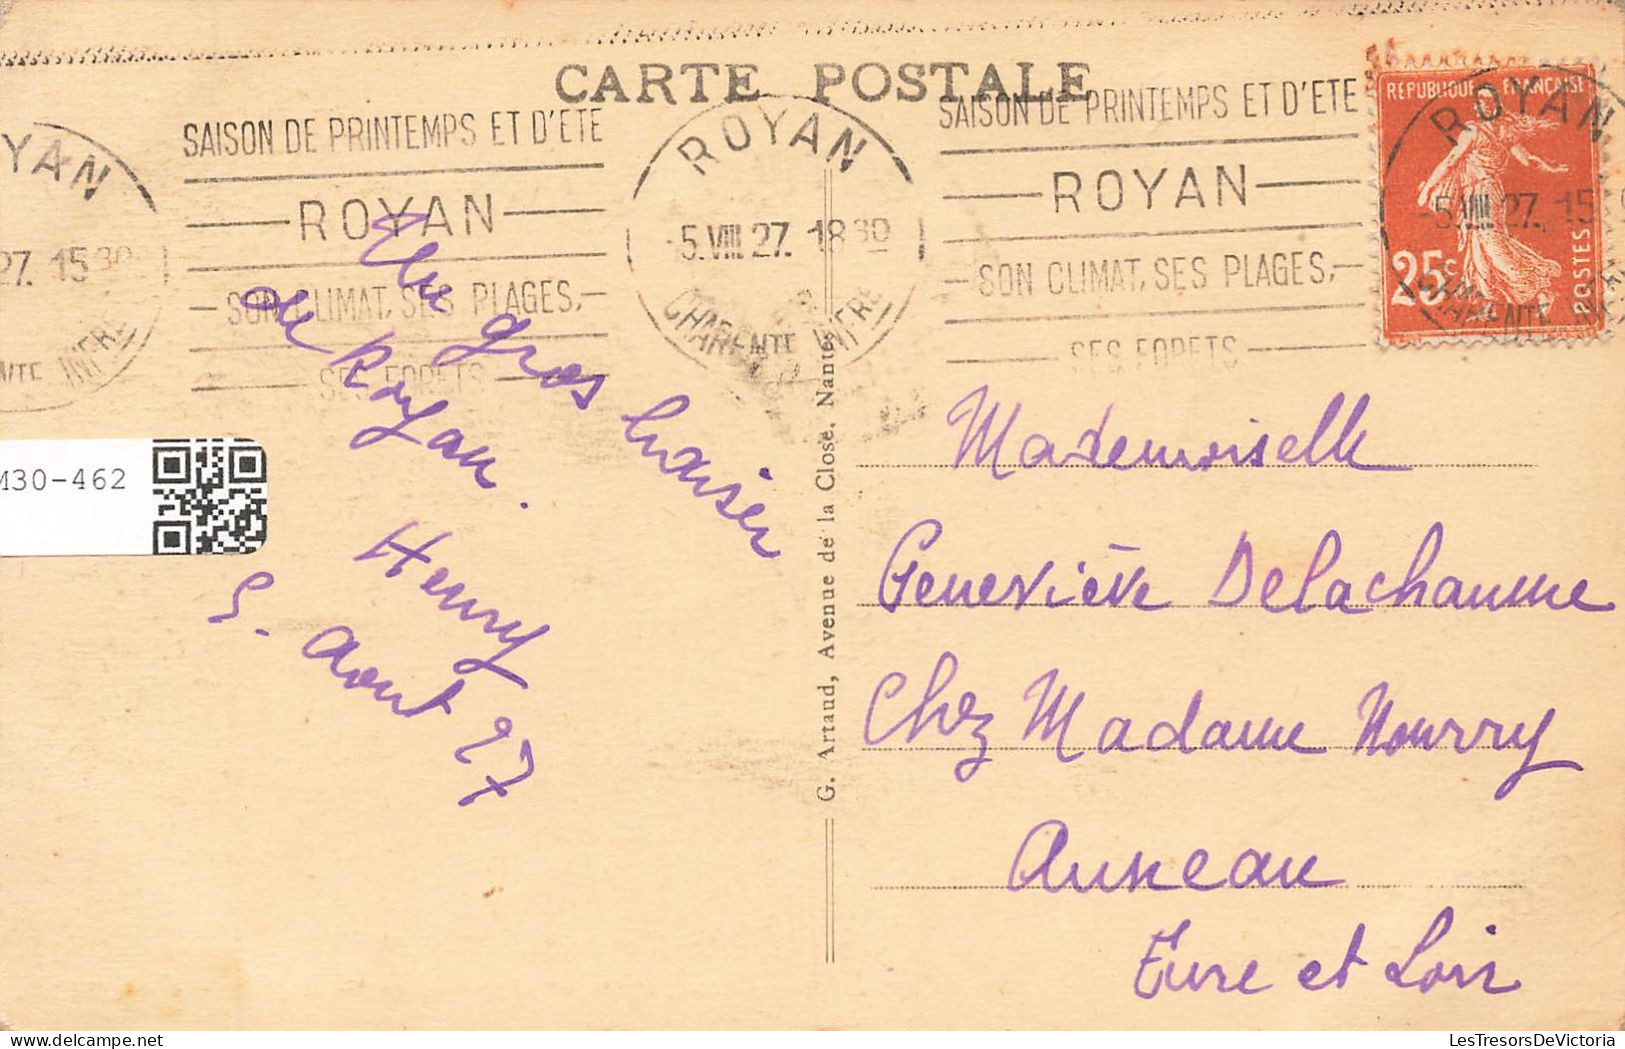 CARTE POSTALE
YAN
27. 15 30
NTE INFRE
SAISON DE PRINTEMPS ET D'ÉTÉ
ROYAN
SON CLIMAT, SES PLAGES,
SES FORETS
ROYAN
-5.VIII 27. 18 30
CHARENTE INFRE
SAISON DE PRINTEMPS ET D'ÉTÉ
ROYAN
SON CLIMAT, SES PLAGES,
SES FORETS
REPUBLIQUE FRANÇAISE
25c
POSTES
ROYAN
-5.VIII 27. 15
CHARENTE
Un gros baiser
de Royan.
Henry
5. Aout 27
M30-462
G. Artaud, Avenue de la Close, Nantes
Mademoiselle
Geneviève Delachaume
Chez Madame Nourry
Auneau
Eure et Loir
LesTresorsDeVictoria